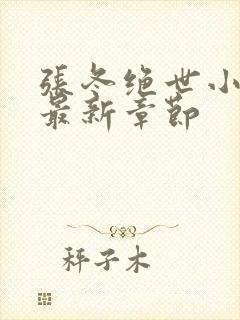 張冬绝世小
最新章節
秤子木